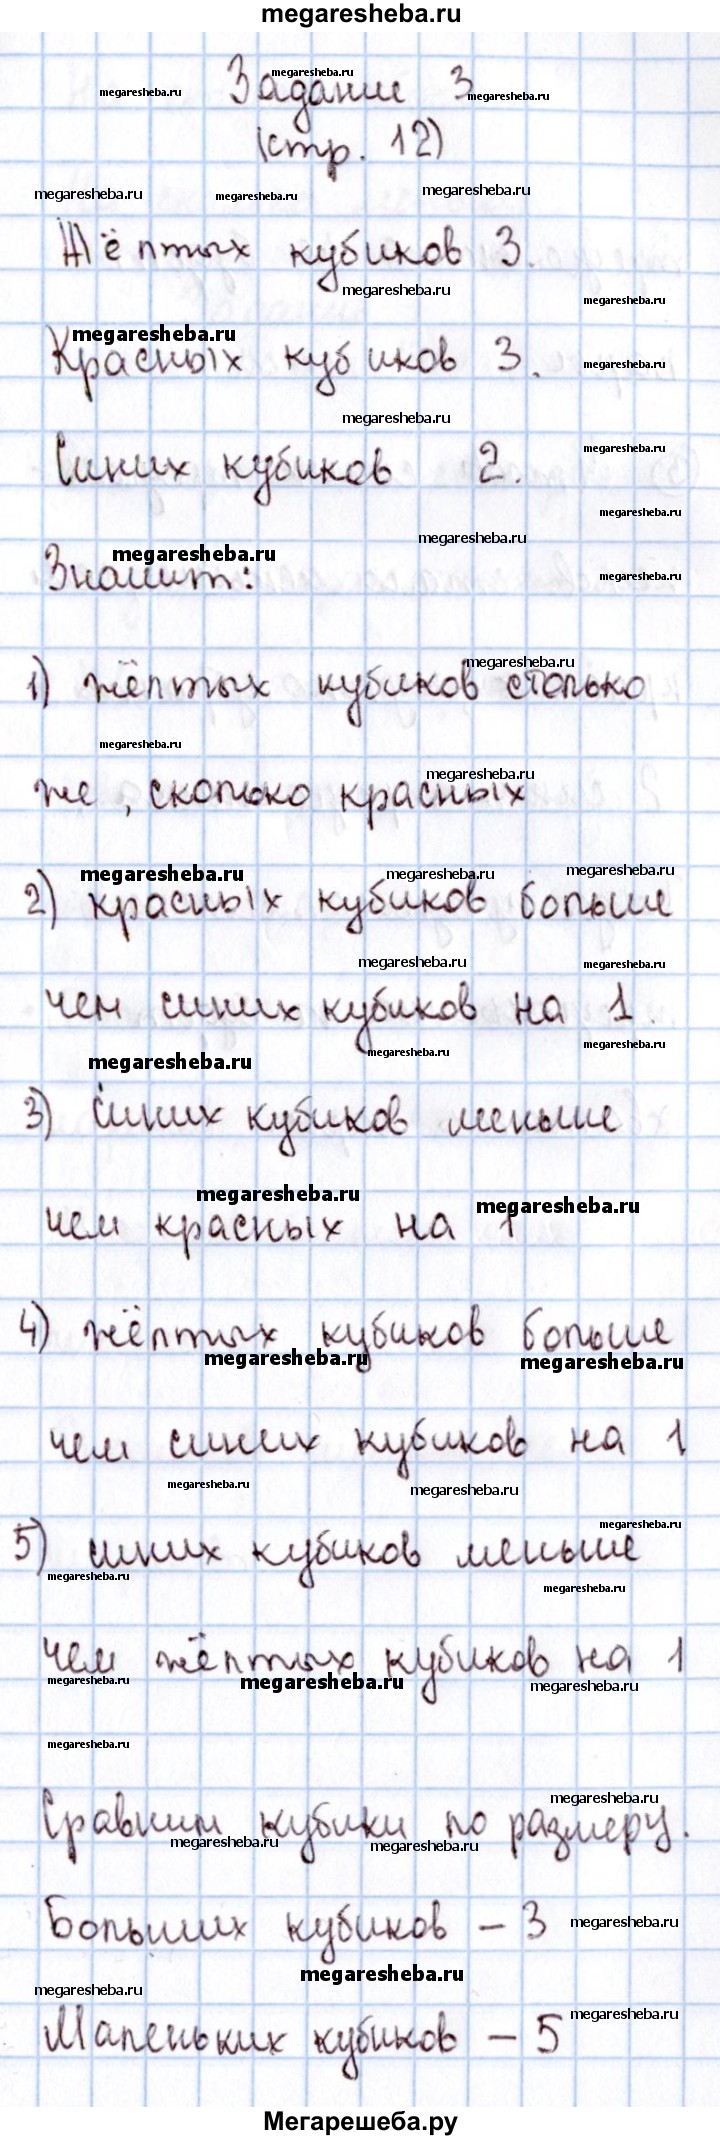 megaresheba.ru
Задание 3
(стр. 12)
Жёлтых кубиков 3.
Красных кубиков 3.
Синих кубиков 2.
Значит:
1) жёлтых кубиков столько
же, сколько красных
2) красных кубиков больше
чем синих кубиков на 1.
3) Синих кубиков меньше
чем красных на 1
4) жёлтых кубиков больше
чем синих кубиков на 1
5) синих кубиков меньше
чем жёлтых кубиков на 1
Сравним кубики по размеру.
Больших кубиков – 3
Маленьких кубиков – 5
Мегарешеба.ру